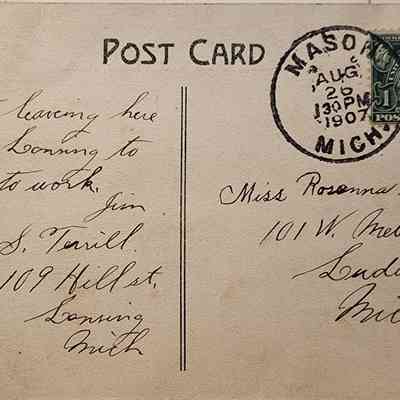 POST CARD
MASON
AUG
26
130PM
1907
MICH.
1
POS
leaving here
Lansing to
to work.
Jim
S. Terrill.
109 Hill st.
Lansing
Mich
Miss Rosenna
101 W. Me
Lud
Mic